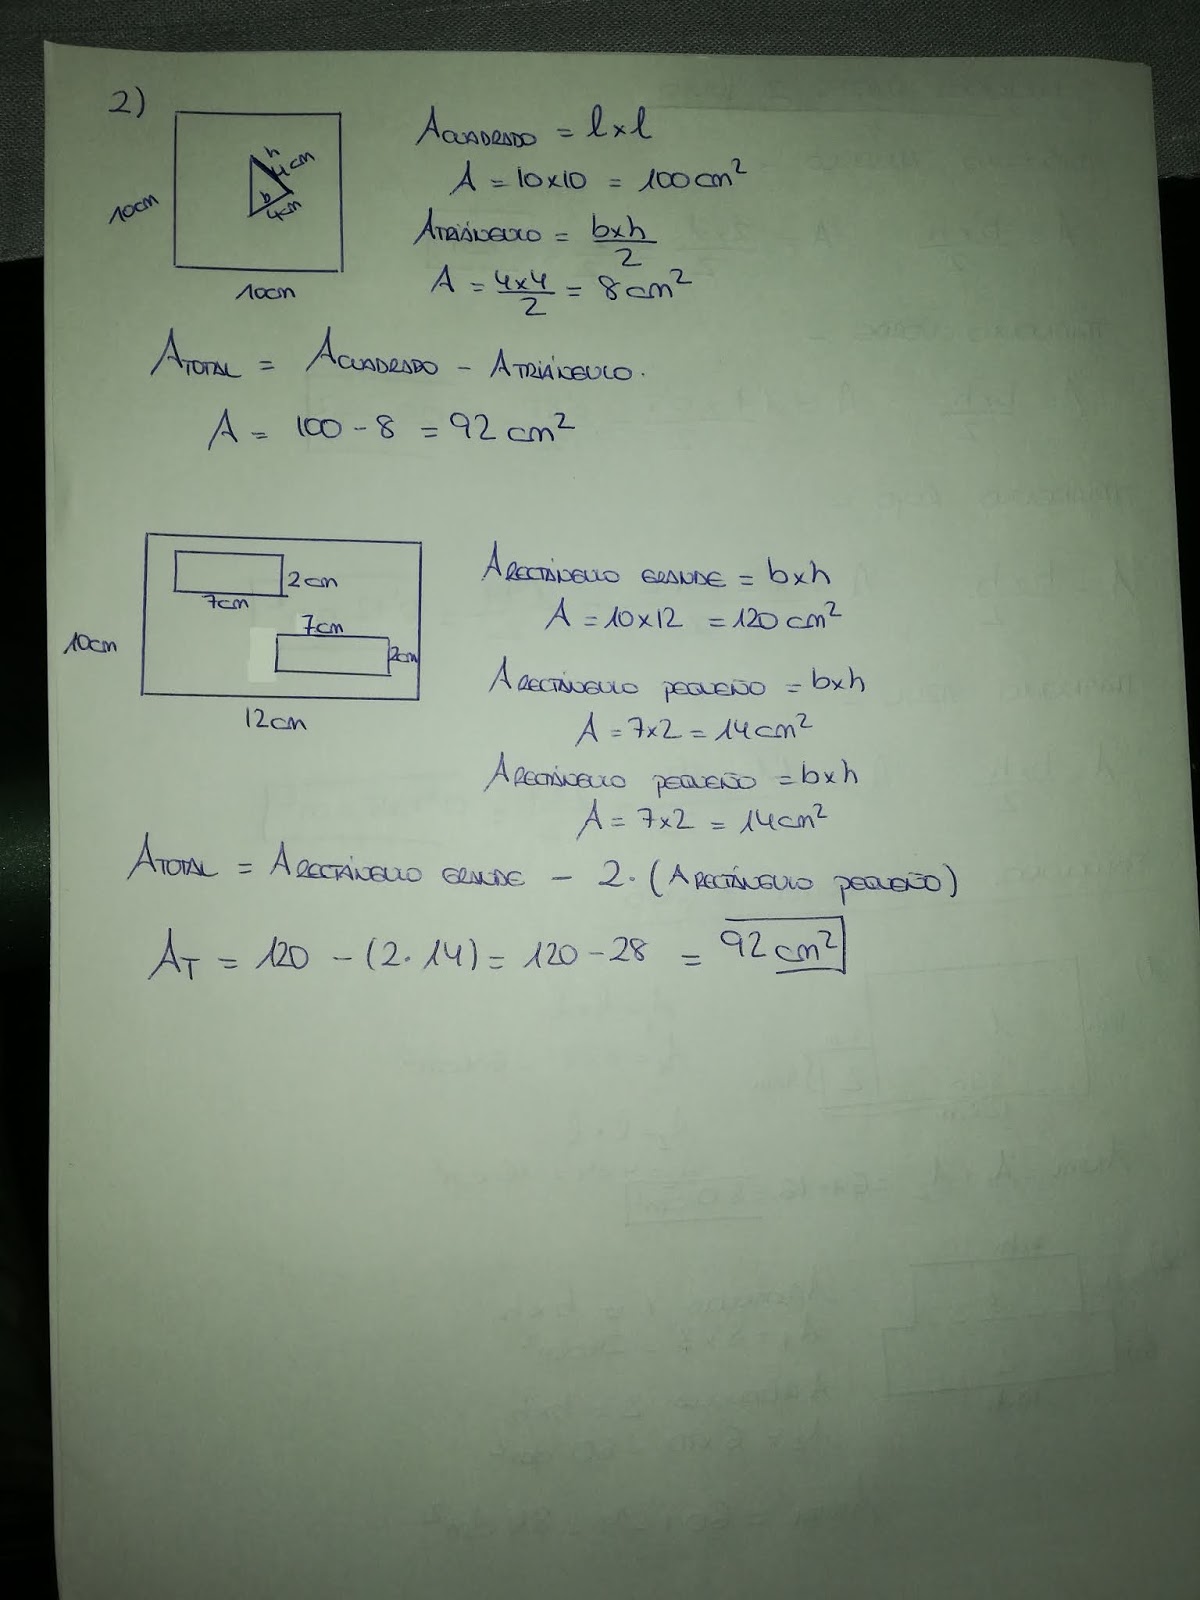 2)
h
4cm
b
4cm
10cm
10cm
ACUADRADO = l x l
A = 10x10 = 100cm²
ATRIÁNGULO = bxh/2
A = 4x4/2 = 8cm²
ATOTAL = ACUADRADO - ATRIÁNGULO.
A = 100-8 = 92cm²
2cm
7cm
7cm
2cm
10cm
12cm
ARECTÁNGULO GRANDE = bxh
A = 10x12 = 120cm²
ARECTÁNGULO PEQUEÑO = bxh
A = 7x2 = 14cm²
ARECTÁNGULO PEQUEÑO = bxh
A = 7x2 = 14cm²
ATOTAL = ARECTÁNGULO GRANDE - 2·(ARECTÁNGULO PEQUEÑO)
AT = 120 -(2·14) = 120-28 = 92cm²